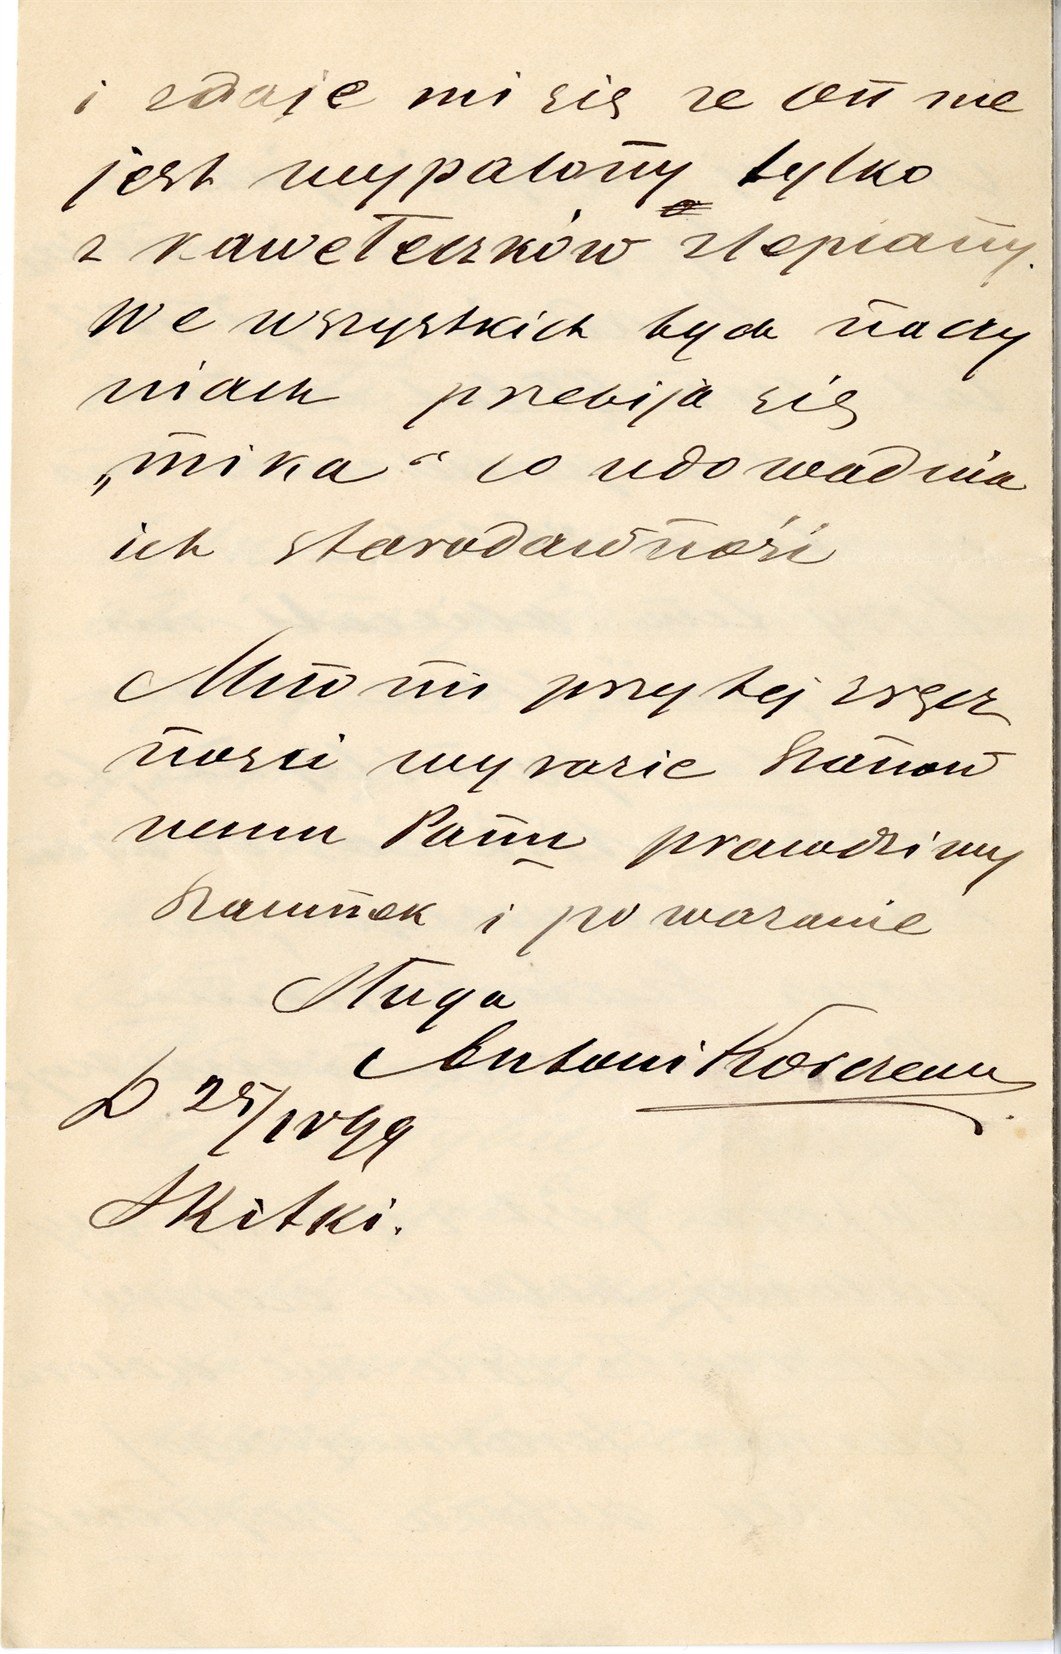 i zdaje mi się ze on nie
jest wypalony tylko
z kawełeczków zlepiany.
We wszystkich tych naczy
niach przebija się
„mika“ co udowadnia
ich starodawność
Miło mi przy tej zręcz
ności wyrazić Szanow
nemu Panu prawdziwy
szacunek i powazanie
Sługa
Antoni
D 25/IV 99
Skitki.